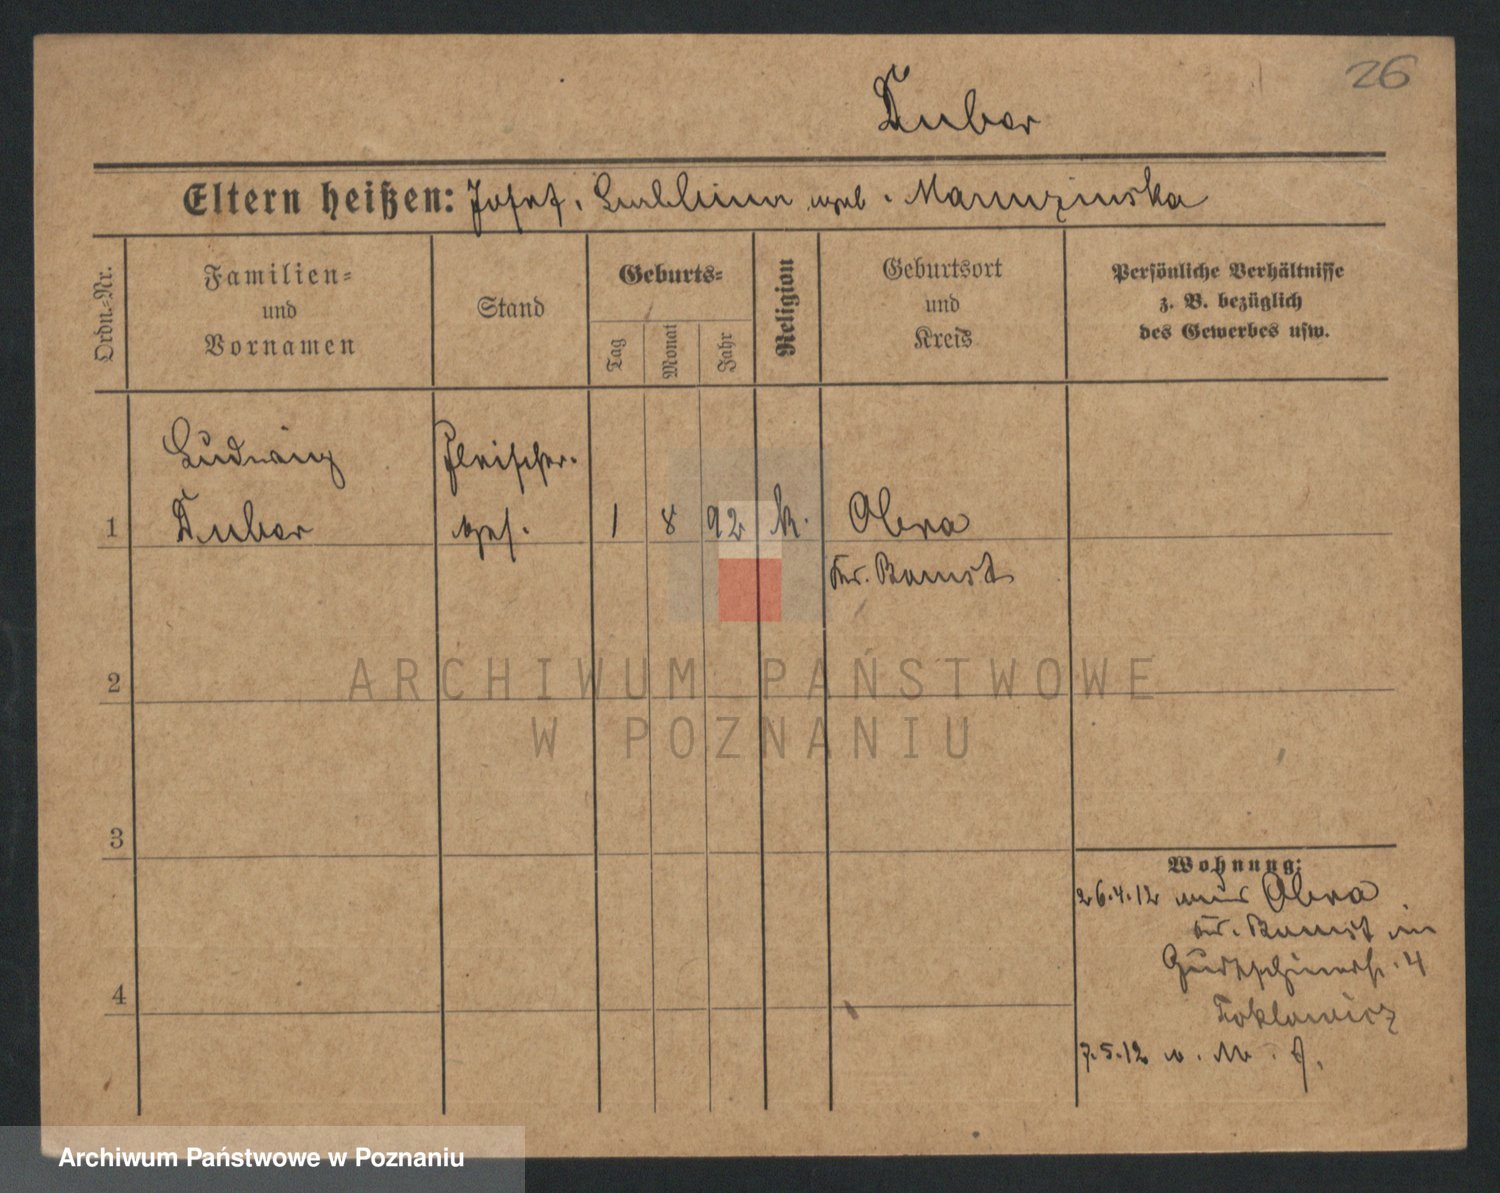 26
Tubor
Eltern heißen: Josef, geb.
Ordn.-Nr.
Familien=
und
Vornamen
Stand
Geburts=
Tag
Monat
Jahr
Religion
Geburtsort
und
Kreis
Persönliche Verhältnisse
z. B. bezüglich
des Gewerbes usw.
Ludwig
Fleischer-
1 Tubor ges. 1 8 92 k. Obra
Kr. Bomst
2
ARCHIWUM PAŃSTWOWE
W POZNANIU
3
Wohnung:
26.4.12 aus Obra
Kr. Bomst in
4
4
7.5.12
Archiwum Państwowe w Poznaniu